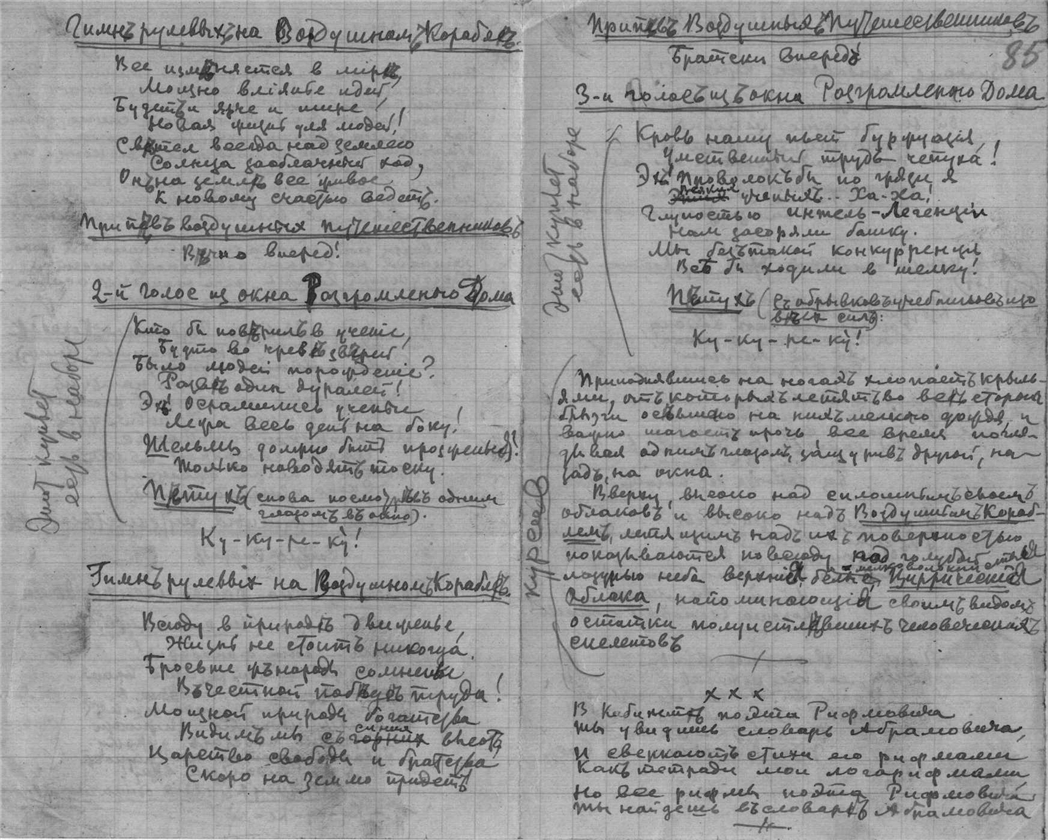 Гимнъ рулевыхъ на Воздушномъ Кораблѣ.
Все измѣняется в мірѣ,
Мощно вліяніе идей,
Будетъ и ярче и шире
Новая жизнь для людей!
Свѣтел всегда над землею
Солнца заоблачный ход,
Онъ на землѣ все живое
К новому счастью ведетъ.
Припѣвъ воздушныхъ путешественниковъ
Вѣчно вперед!
2-й голос из окна Разгромленного Дома
Кто бы повѣрилъ в ученіе,
Будто во чревѣ звѣрей
Было людей порожденіе?
Развѣ один дуралей!
Эк осрамились ученые
Лгра весь день на боку!
Шельмы должно быть прожженыя!
Только наводятъ тоску.
Пѣтухъ (снова посмотрѣвъ одним
глазомъ въ окно).
Ку-ку-ре-ку!
Этот куплет
есть в наборе
Гимнъ рулевых на Воздушномъ Кораблѣ
Всюду в природѣ движенье,
Жизнь не стоитъ никогда.
Бросьте жъ народы сомненья
Въ честной побѣдѣ труда!
Мощной природы богатства
Видимъ мы съ горних высотъ
синих
Царство свободы и братства
Скоро на землю придетъ
Припѣвъ Воздушныхъ Путешественниковъ
85
Братски впередъ
3-й голосъ изъ окна Разгромленного Дома
Кровь нашу пьет буржуазія,
Умственный трудъ чепуха!
Эх проволокъ бы по грязи я
всѣхъ ученыхъ.. Ха-Ха!
Глупостью интель-Легенціи
Нам засоряли башку.
Мы безъ такой конкурренции
Всѣ бы ходили в шелку!
Пѣтухъ (съ обрывковъ учебниковъ изо
всѣх силъ):
Ку-ку-ре-ку!
Этот куплет
есть в наборе
Приподнявшись на ногахъ хлопаетъ крыль-
ями, отъ которыхъ летятъ во всѣ стороны
брызги осѣвшаго на нихъ мелкого дождя, и
важно шагаетъ прочь все время погля-
дывая однимъ глазомъ, зажмуривъ другой, на-
задъ, на окна.
Вверху, высоко над сплошнымъ слоемъ
облаковъ и высоко надъ Воздушнымъ Кораб-
лемъ, летящимъ надъ ихъ поверхностью
показываются повсюду под голубой
лазурью неба верхнія бѣлые, Циррическія
Облака, напоминающія своимъ видомъ
остатки полуистлѣвшихъ человеческихъ
скелетовъ
курсив
х х х
В Кабинетѣ поэта Рифмовича
Ты увидишь словарь Абрамовича,
И сверкаютъ стихи его рифмами
Какъ тетради мои логарифмами
Но все рифмы поэта Рифмовича
Ты найдешь въ словарѣ Абрамовича